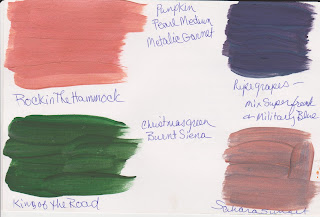 Pumpkin
Pearl Medium
Metallic Garnet
Rockin The Hammock
Ripe grapes –
mix Super
& Military Blue
Christmas green
Burnt Siena
King of the Road
Sahara